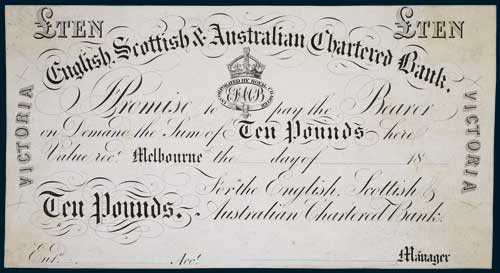 £TEN £TEN
English, Scottish & Australian Chartered Bank.
VICTORIA
Promise to pay the Bearer
on Demand the Sum of Ten Pounds here
Value recd. Melbourne the day of 18
For the English, Scottish &
Ten Pounds. Australian Chartered Bank.
Entd. Acct. Manager
VICTORIA